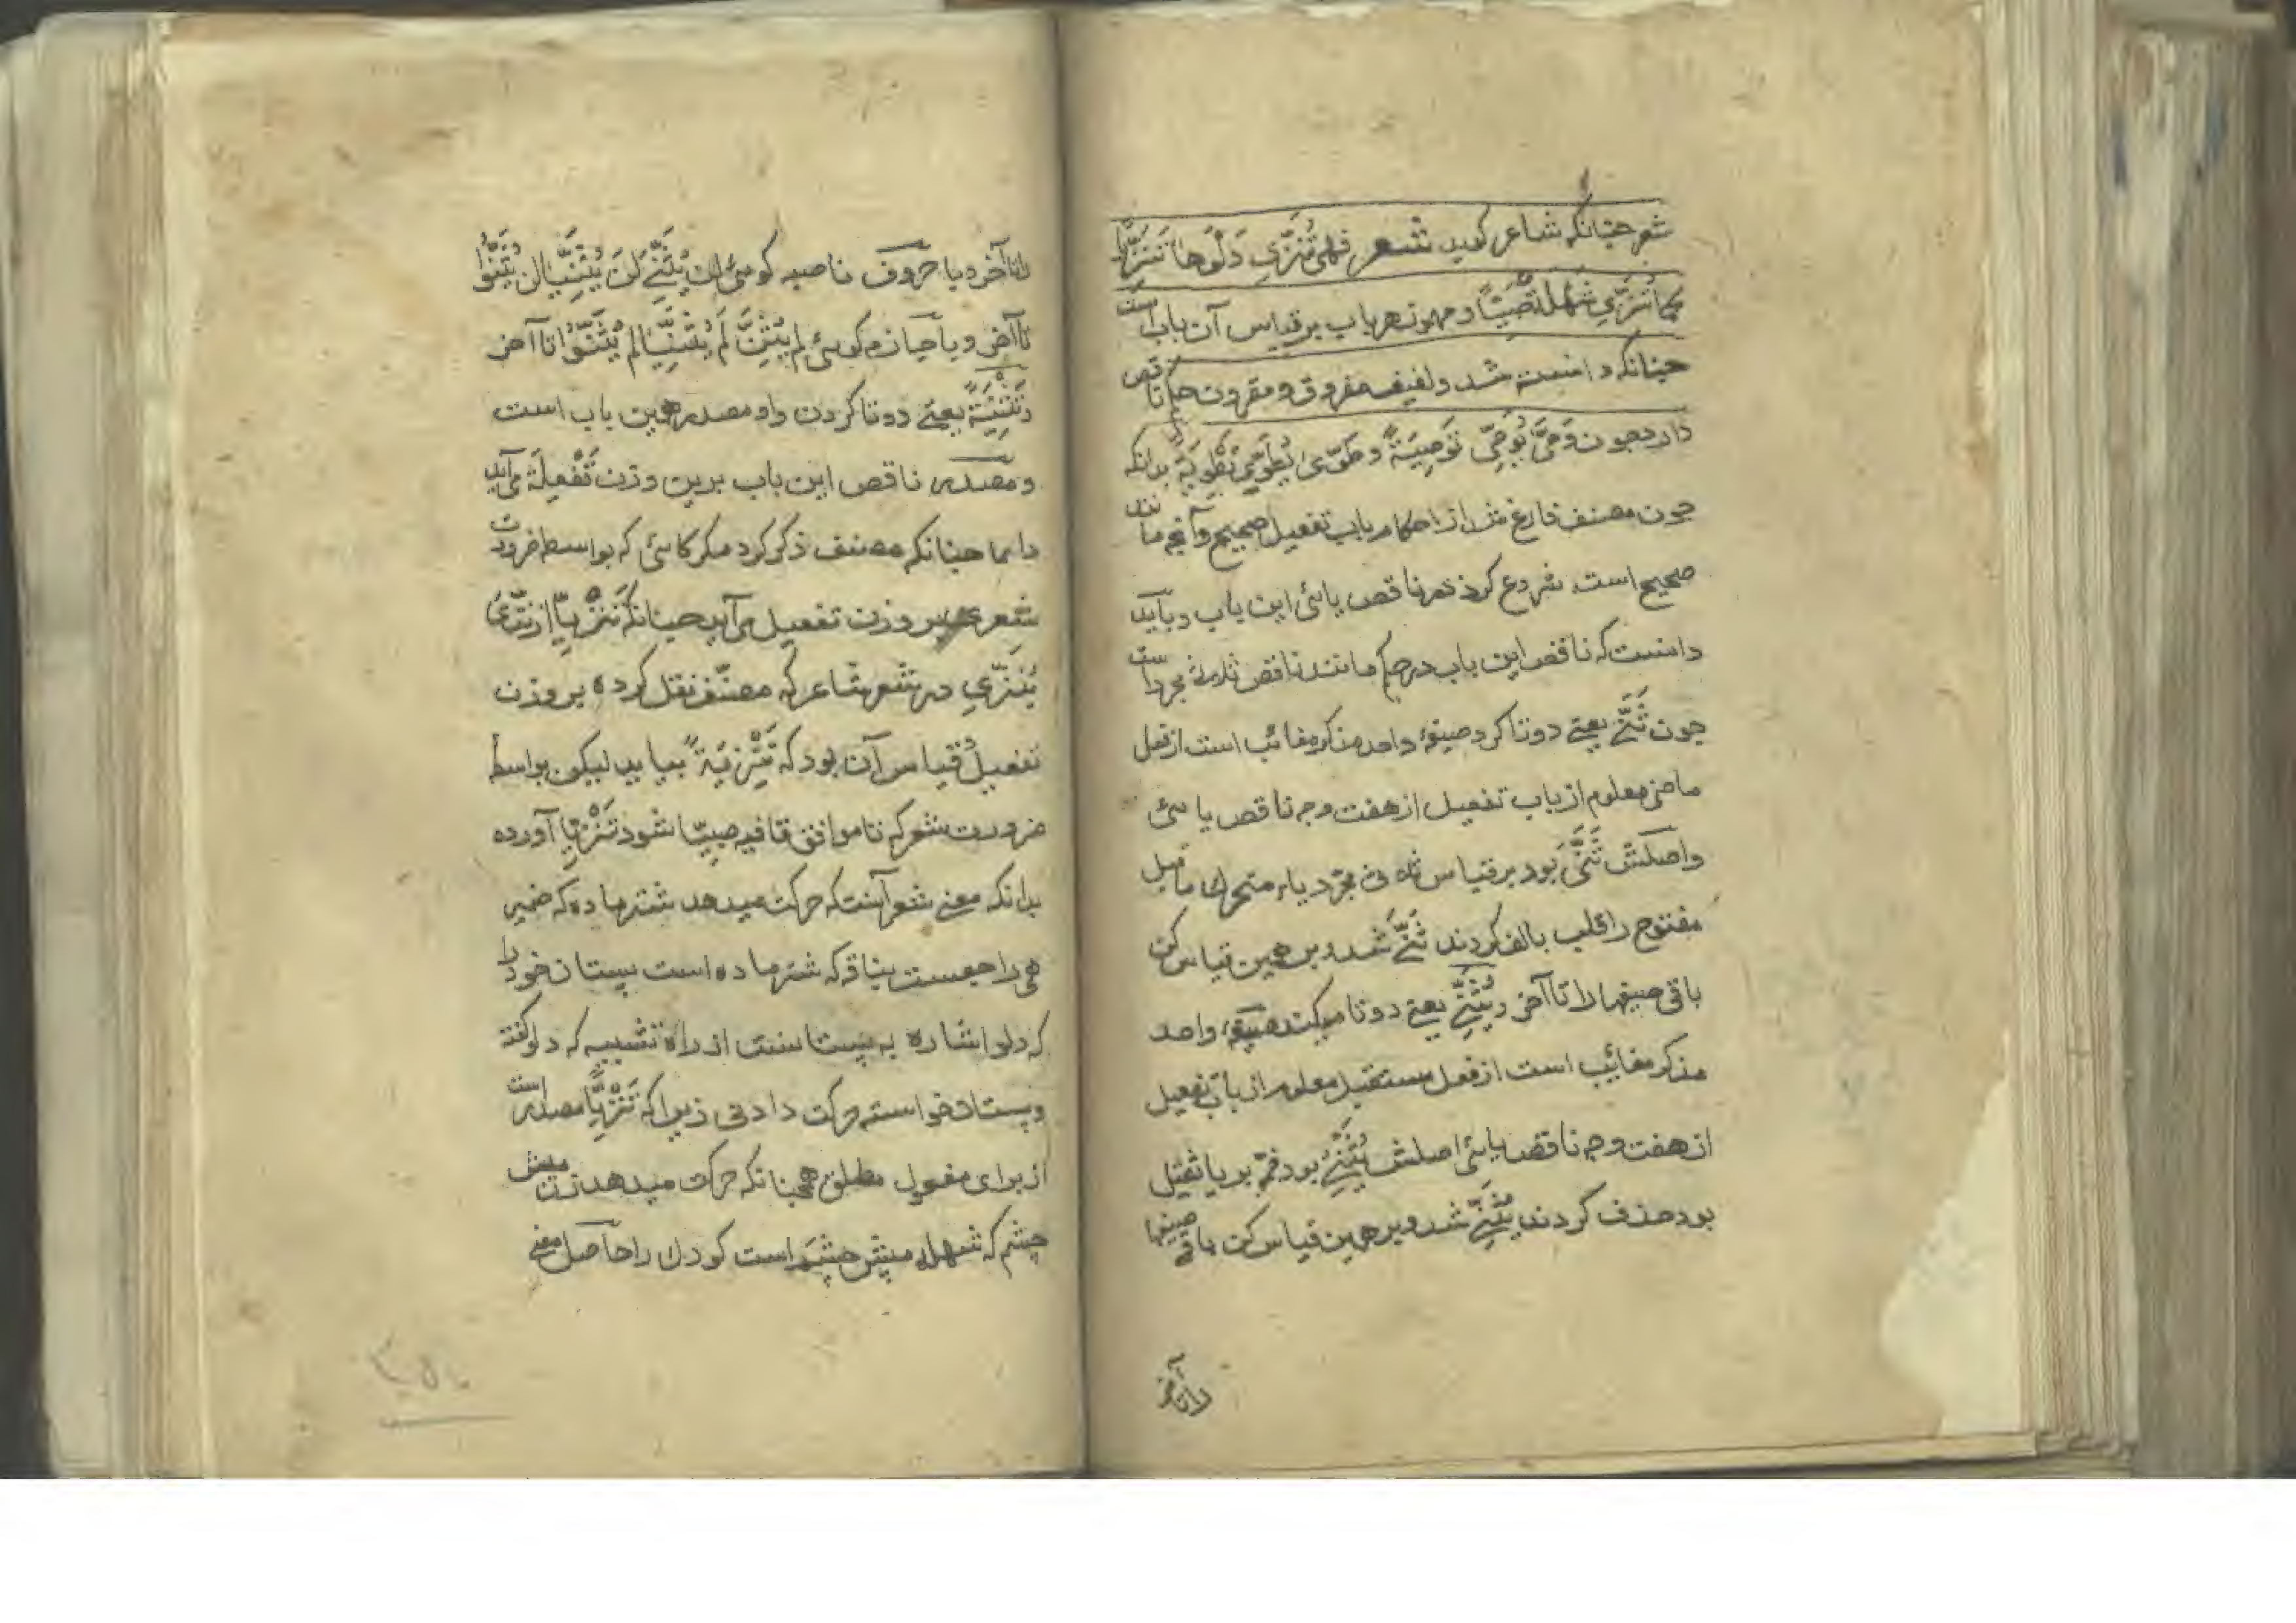 شعر چنانکه شاعر کوید شعر فهی تُنَزِّی دَلْوَها تَنْزِیًّا
کما تُنَزِّی شَهْلَةٌ صَبِیًّا و مهموز هر باب بر قیاس آن باب است
چنانکه دانسته شد و لفیف مفروق و مقرون حکم ناقص
دارد چون وَصّیٰ یُوَصِّی تَوْصِیَةً و طَوّیٰ یُطَوِّی تَطْوِیَةً بدانکه
چون مصنف فارغ شد از احکام باب تفعیل صحیح و آنچه مانند
صحیح است شروع کرد در ناقص یائی این باب و بباید
دانست که ناقص این باب در حکم مانند ناقص ثلاثی مجرد است
چون ثَنّیٰ یعنے دوتا کرد صیغهٔ واحد مذکر مغائب است از فعل
ماضی معلوم از باب تفعیل از هفت وجه ناقص یائی
واصلش ثَنَّیَ بود بر قیاس ثلاثی مجرّد یاء متحرک ماقبل
مفتوح را قلب بالف کردند ثَنّیٰ شد و برهمین قیاس کن
باقی صیغها را تا آخر و یُثَنِّی یعنے دوتا میکند صیغهٔ واحد
مذکر مغائب است از فعل مستقبل معلوم از باب تفعیل
از هفت وجه ناقص یائی اصلش یُثَنِّیُ بود ضمّه بر یا ثقیل
بود حذف کردند یُثَنِّی شد و برهمین قیاس کن باقی صیغها
را تا آخر
را تا آخر و با حروف ناصبه کوئی لن یُثَنِّیَ لَن یُثَنِّیَا لن یُثَنُّوا
تا آخر و با جازم کوئی لم یُثَنِّ لَم یُثَنِّیَا لم یُثَنُّوا تا آخر
و تَثْنِیَةً یعنے دوتا کردن و او مصدر همین باب است
و مصدر ناقص این باب برین وزن تَفْعِلَة می‌آید
دایما چنانکه مصنف ذکر کرد مکر کاهی که بواسطه ضرورت
شعری بر وزن تفعیل می‌آید چنانکه تَنْزِیًّا از نَزّیٰ
یُنَزِّی در شعر شاعر که مصنّف نقل کرده بر وزن
تفعیل قیاس آن بود که تَنْزِیَةً بیاید لیکن بواسطه
ضرورت شعر که تا موافق قافیه صبیًّا شود تَنْزِیًّا آورده
بدانکه معنے شعر آنست که حرکت میدهد شتر ماده که ضمیر
هی راجعست بناقه که شتر ماده است پستان خود را
که دلو اشاره به پستانست از راه تشبیه که دلو گفته
و پستان خواسته حرکت دادنی زیرا که تَنْزِیًّا مصدر است
از برای مفعول مطلق همچنانکه حرکت میدهد زن میش
چشم که شهله میش چشم است کودک را حاصل معنے